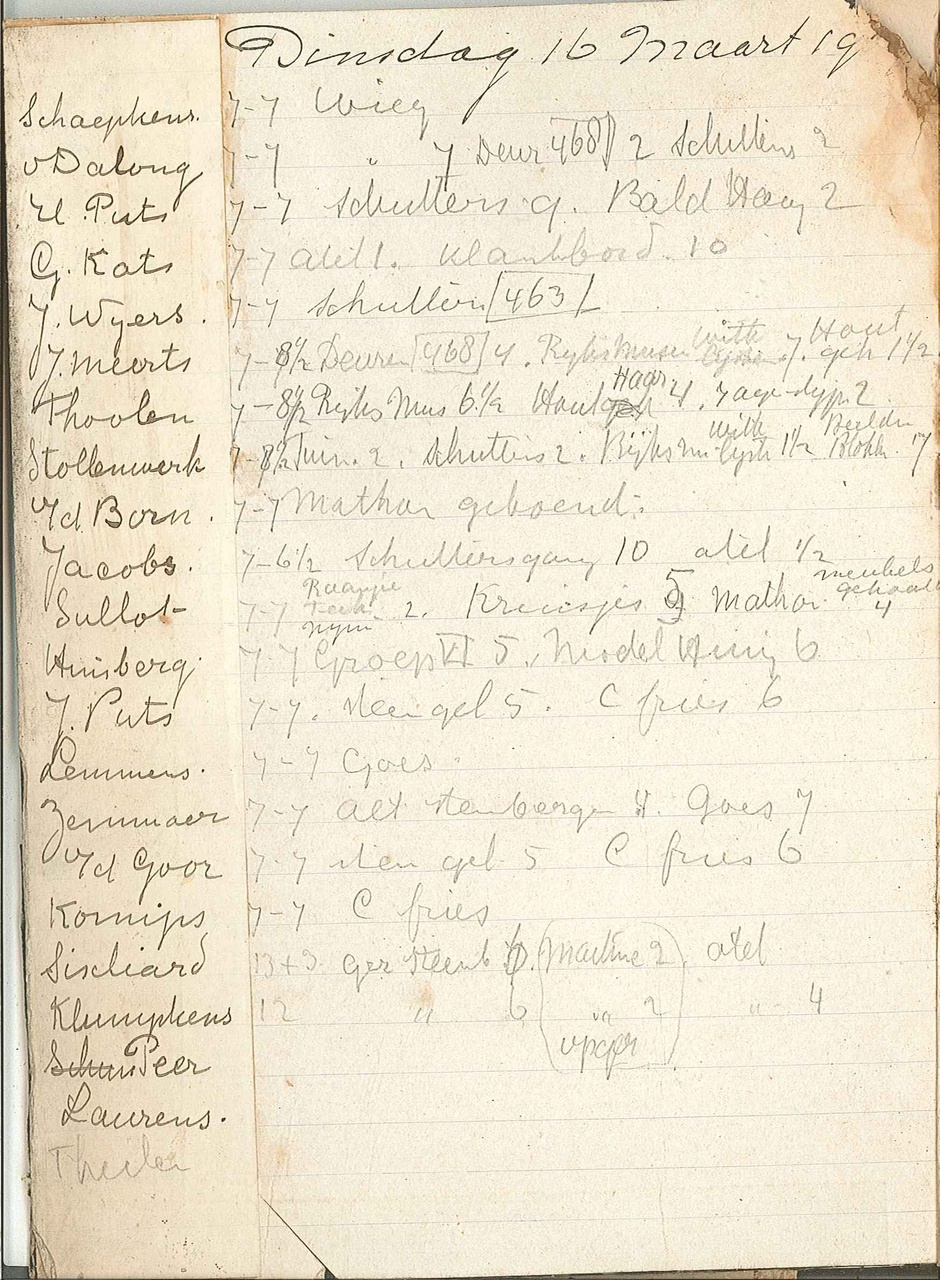 Dinsdag 16 Maart 19
Schaepkens. 7-7 Wieg
v Dalong 7-7 " 7 Deur 468 2 Schuttens 2
H. Puts 7-7 Schuttersg. Bald Haag 2
G. Kats 7-7 atel 1. 10
J. Wyers. 7-7 Schutters 463
J. Meerts 7-8½ Deuren 468 4. Ryksmuseu 7. Hout geh 1½
Thoolen 7-8½ Ryks Mus 6½ Hout Haag 4. 2
Stollenwerk 7-8½ Tuin. 2. Schutters 2. Ryksmu 1½ Beelden Blokk. 7
v/d Born. 7-7 Mathon geboend.
Jacobs. 7-6½ Schuttersgang 10 atel ½
Sullot 7-7 2. Kruisjes 5 Mathon meubels gehaald 4
Huisberg. 7-7 Groep VI 5. Model 6
J. Puts 7-7. Steengel 5. C fries 6
Lemmens. 7-7 Goes
Zemmaer 7-7 alt Steenbergen 4. Goes 7
v/d Goor 7-7 Steen gel 5 C fries 6
Komips 7-7 C fries
Sisliard 13+3 ger Steenb 6. (Machine 2) atel
Klumpkens 12 " 6 " 2 " 4
Peer
Laurens.